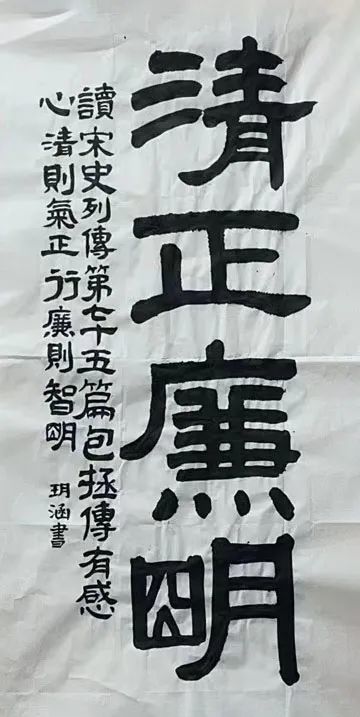 清正廉明
讀宋史列傳第七十五篇包拯傳有感
心清則氣正行廉則智明
玥涵書